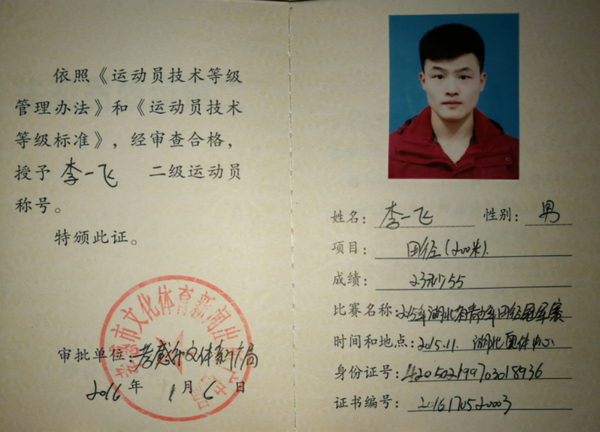 依照《运动员技术等级
管理办法》和《运动员技术
等级标准》，经审查合格，
授予 李一飞 二级运动员
称号。
特颁此证。
审批单位：孝感市文体新广局
2016 年 1 月 6 日
姓名：李一飞 性别：男
项目：田径（200米）
成绩：23秒55
比赛名称：2015年湖北省青少年田径冠军赛
时间和地点：2015.11. 湖北奥体中心
身份证号：
证书编号：
市文化体育新闻出版